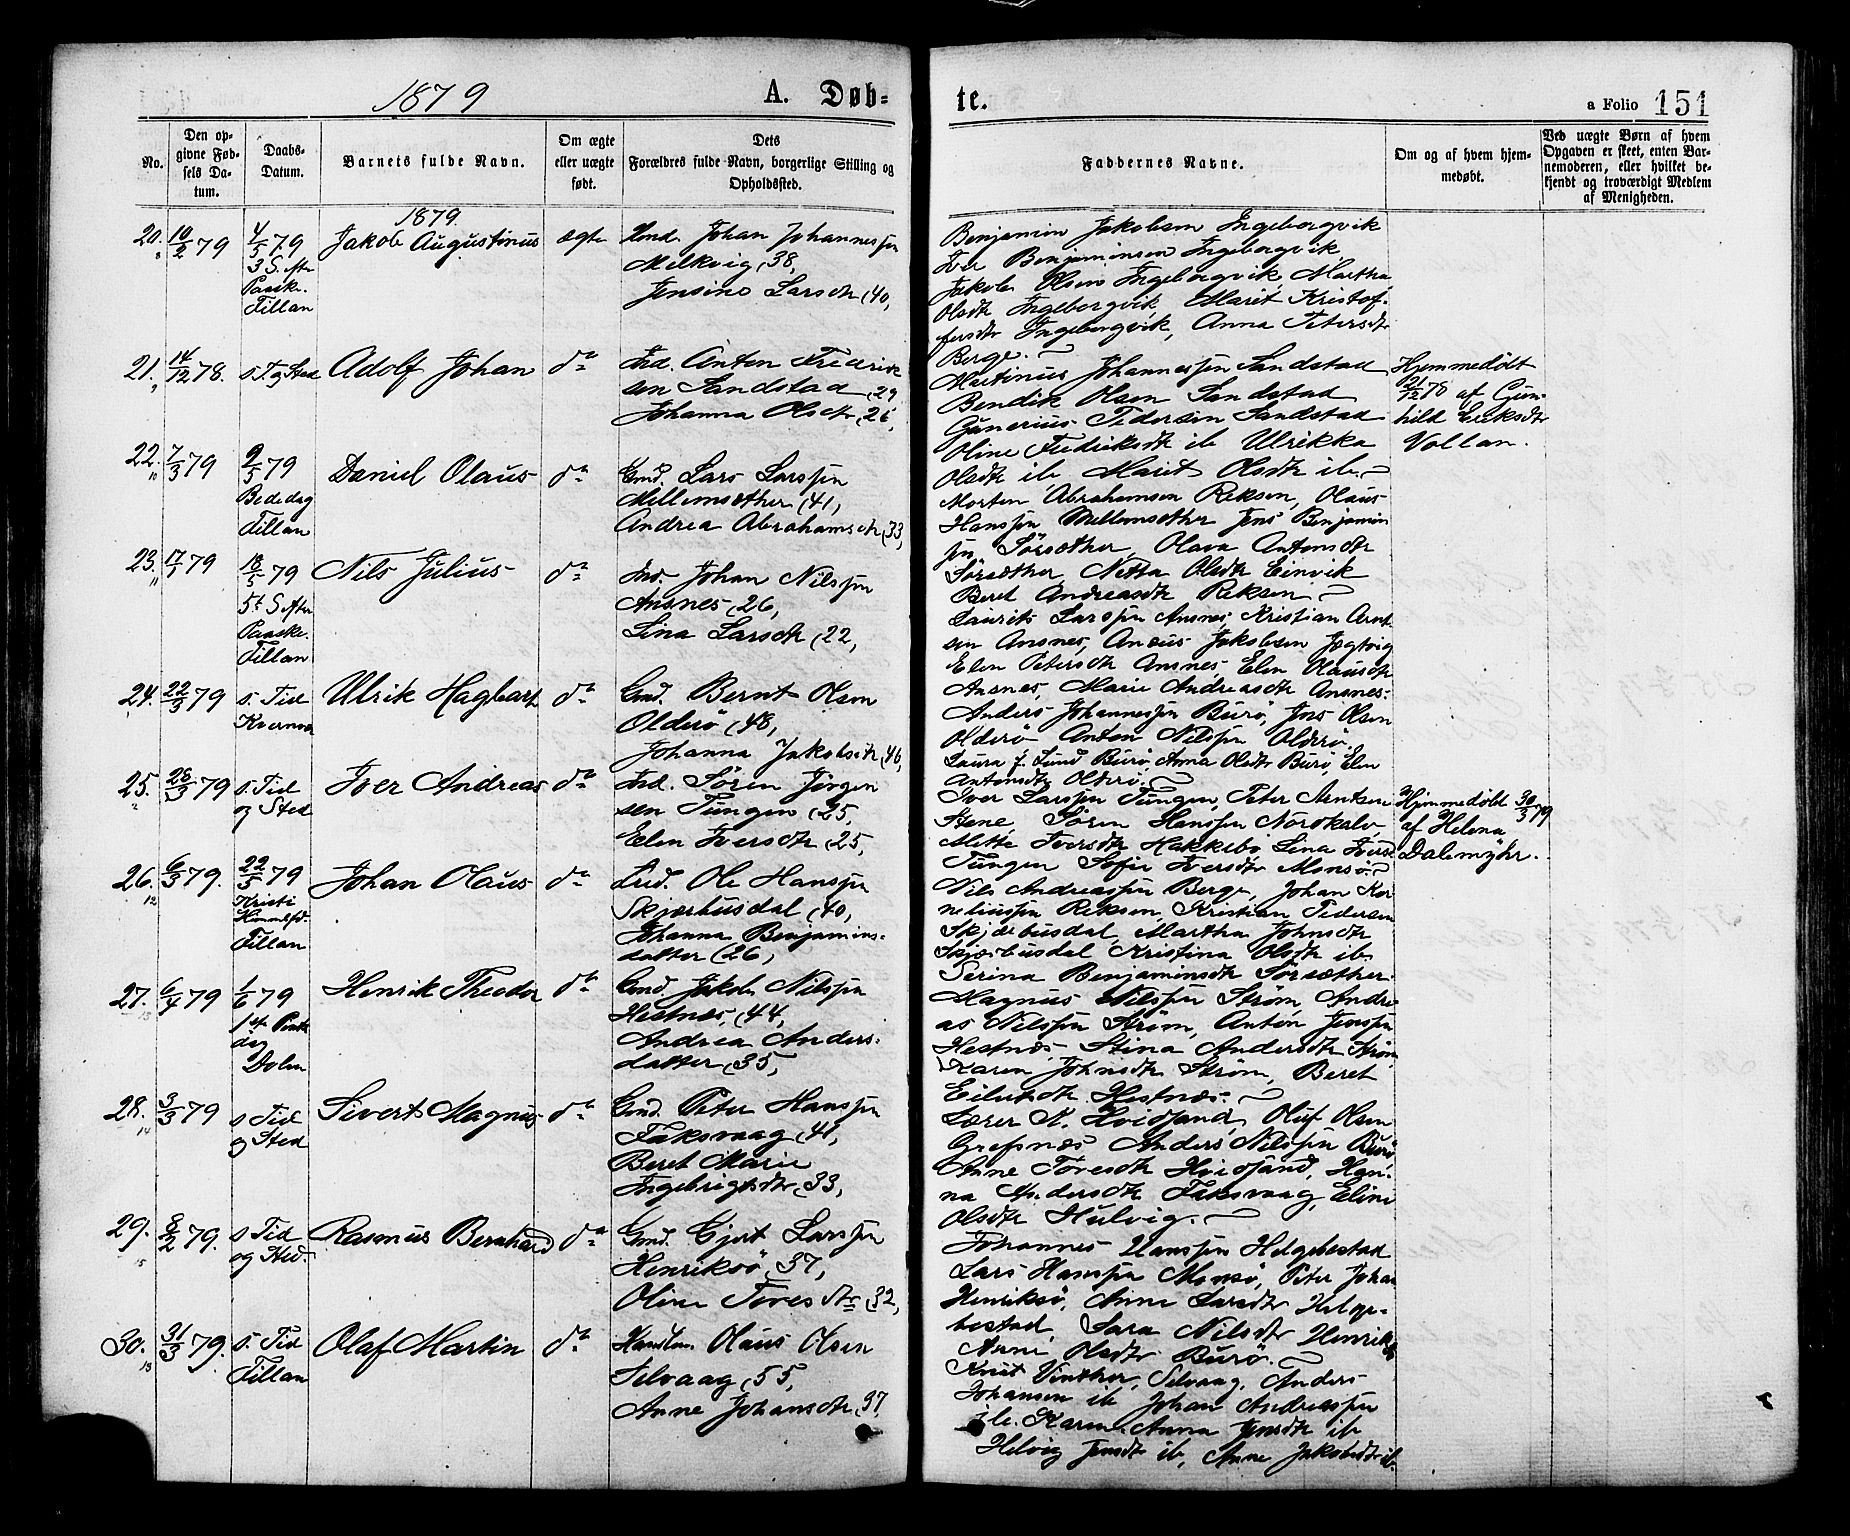 1879
A. Døb=
te.
a Folio 151
No.
Den op-
givne Fød-
sels Da-
tum.
Daabs-
Datum.
Barnets fulde Navn.
Om ægte
eller uægte
født.
Dets
Forældres fulde Navn, borgerlige Stilling og
Opholdssted.
Faddernes Navne.
Om og af hvem hjem-
medøbt.
Ved uægte Børn af hvem
Opgaven er skeet, enten Bar-
nemoderen, eller hvilket be-
kjendt og troværdigt Medlem
af Menigheden.
1879.
20. 10/2 79
4/5 79
3 S. efter
Paaske.
Fillan
Jakob Augustinus
ægte
Johan Johannessen
Melkvig (38,
Jensine Larsdtr (40,
Benjamin Jakobsen Ingeborgvik
Iver Benjaminsen Ingeborgvik,
Jakob Olsen Ingeborgvik, Martha
Olsdtr Ingeborgvik, Marit Kristof-
fersdtr Ingeborgvik, Anna Petersdtr
Berge.
21. 14/12 78.
s. T. og Sted
Adolf Johan
do
Ind. Anton Fredrik
sen Sandstad (29
Johanna Olsdtr (26,
Martinus Johannessen Sandstad
Bendik Olsen Sandstad
Gunerius Pedersen Sandstad
Oline Fredriksdtr ib Ulrikka
Olsdtr ib Marit Olsdtr ib.
Hjemmedøbt
21/12 78 af Gun-
hild Eriksdtr
Vollan.
22. 7/3 79
9/5 79
Bededag
Fillan
Daniel Olaus
do
Gmd. Lars Larssen
Mellemsæther (41,
Andrea Abrahamsdtr (33,
Morten Abrahamsen Reksen, Olaus
Hanssen Mellemsæther Jens Benjamin
sen Sørsæther, Olava Antonsdtr
Sørsæther, Netta Olsdtr Einvik
Beret Andreasdtr Reksen
23. 17/1 79
18/5 79
5t S. efter
Paaske.
Fillan
Nils Julius
do
Ind. Johan Nilssen
Ansnes (26,
Lina Larsdtr (22,
Laurits Larssen Ansnes, Kristian Arnt
sen Ansnes, Anæus Jakobsen Jægtvig
Elen Petersdtr Ansnes, Elen Olausdtr
Ansnes, Marie Andreasdtr Ansnes.
24. 22/3 79
s. Tid
Kvernvo
Ulrik Hagbart
do
Gmd. Bernt Olsen
Olderø (48,
Johanna Jakobsdtr (46,
Anders Johannessen Burø, Jens Olsen
Olderø Anton Nilssen Olderø.
Laura J. Lund Burø Anna Olsdtr Burø, Elen
Antonsdtr Olderø.
25. 28/3 79
s. Tid
og Sted
Iver Andreas
do
Ind. Søren Jørgen
sen Tungen (25,
Elen Iversdtr (25,
Iver Larssen Tungen, Peter Arntsen
Stene Søren Hanssen Nordkalv,
Mette Iversdtr Hakkebo Lina Iversd
Tungen Sofie Iversdtr Monsø.
Hjemmedøbt 30/3 79
af Helena
Dalemyhr.
26. 6/3 79.
22/5 79
Kristi
Himmelfd.
Fillan
Johan Olaus
do
Ind. Ole Hanssen
Skjærbusdal (40,
Johanna Benjamins-
datter (26,
Nils Andreassen Berge, Johan Kor-
neliussen Reksen, Kristian Pedersen
Skjærbusdal, Martha Johnsdtr
Skjærbusdal, Kristina Olsdtr ib
Serina Benjaminsdtr Sørsæther.
27. 6/4 79
1/6 79
1ste Pintse
dag
Dolm
Henrik Theodor
do
Gmd. Jakob Nilssen
Hestnæs, (44,
Andrea Anders-
datter (35,
Magnus Nilssen Strøm, Andre-
as Nilssen Strøm, Anton Jenssen
Hestnæs, Stina Andersdtr Strøm,
Karen Johnsdtr Strøm, Beret
Eilertsdtr Hestnæs.
28. 3/3 79
s Tid
og Sted
Sivert Magnus
do
Gmd. Peter Hanssen
Faksvaag (41,
Beret Marie
Ingebrigtsdtr (33,
Lærer N. Hvidsand, Oluf Olsen
Grefsnæs Anders Nilssen Burø
Anne Toresdtr Hvidsand, Han-
na Andersdtr Faksvaag, Eline
Olsdtr Hulvig.
29. 8/2 79.
s Tid
og Sted.
Rasmus Bernhard
do
Gmd. Gjert Larssen
Henriksø (37,
Oline Toresdtr (32,
Johannes Hanssen Helgebostad
Lars Hanssen Monsø, Peter Johan
Henriksø, Anne Larsdtr Helge-
bostad, Sara Nilsdtr Henriksø
Anne Olsdtr Burø.
30. 31/3 79.
s. Tid
Fillan
Olaf Martin
do
Handlm. Olaus Olsen
Selvaag (55,
Anne Johansdtr (37,
Knut Vinther, Selvaag, Anders
Johansen ib Johan Andreassen
ib. Karen Anna Jensdtr ib
Helvig Jensdtr ib, Anne Jakobsdtr ib.